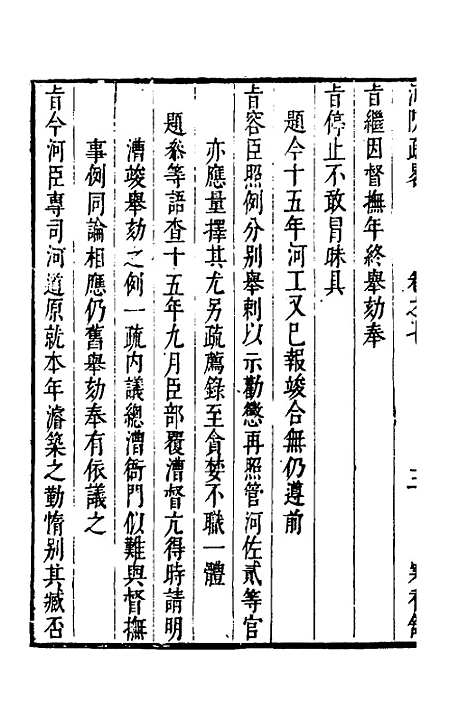 河防疏畧　卷之七　三
旨繼因督撫年終舉劾奉
旨停止不敢冒昧具
題今十五年河工又已報竣合無仍遵前
旨容臣照例分别舉刺以示勸懲再照管河佐貳等官
亦應量擇其尤另疏薦錄至貪婪不職一體
題叅等語查十五年九月臣部覆漕督亢得時請明
漕竣舉劾之例一疏内議總漕衙門似難與督撫
事例同論相應仍舊舉劾奉有依議之
旨今河臣專司河道原就本年濬築之勤惰别其臧否